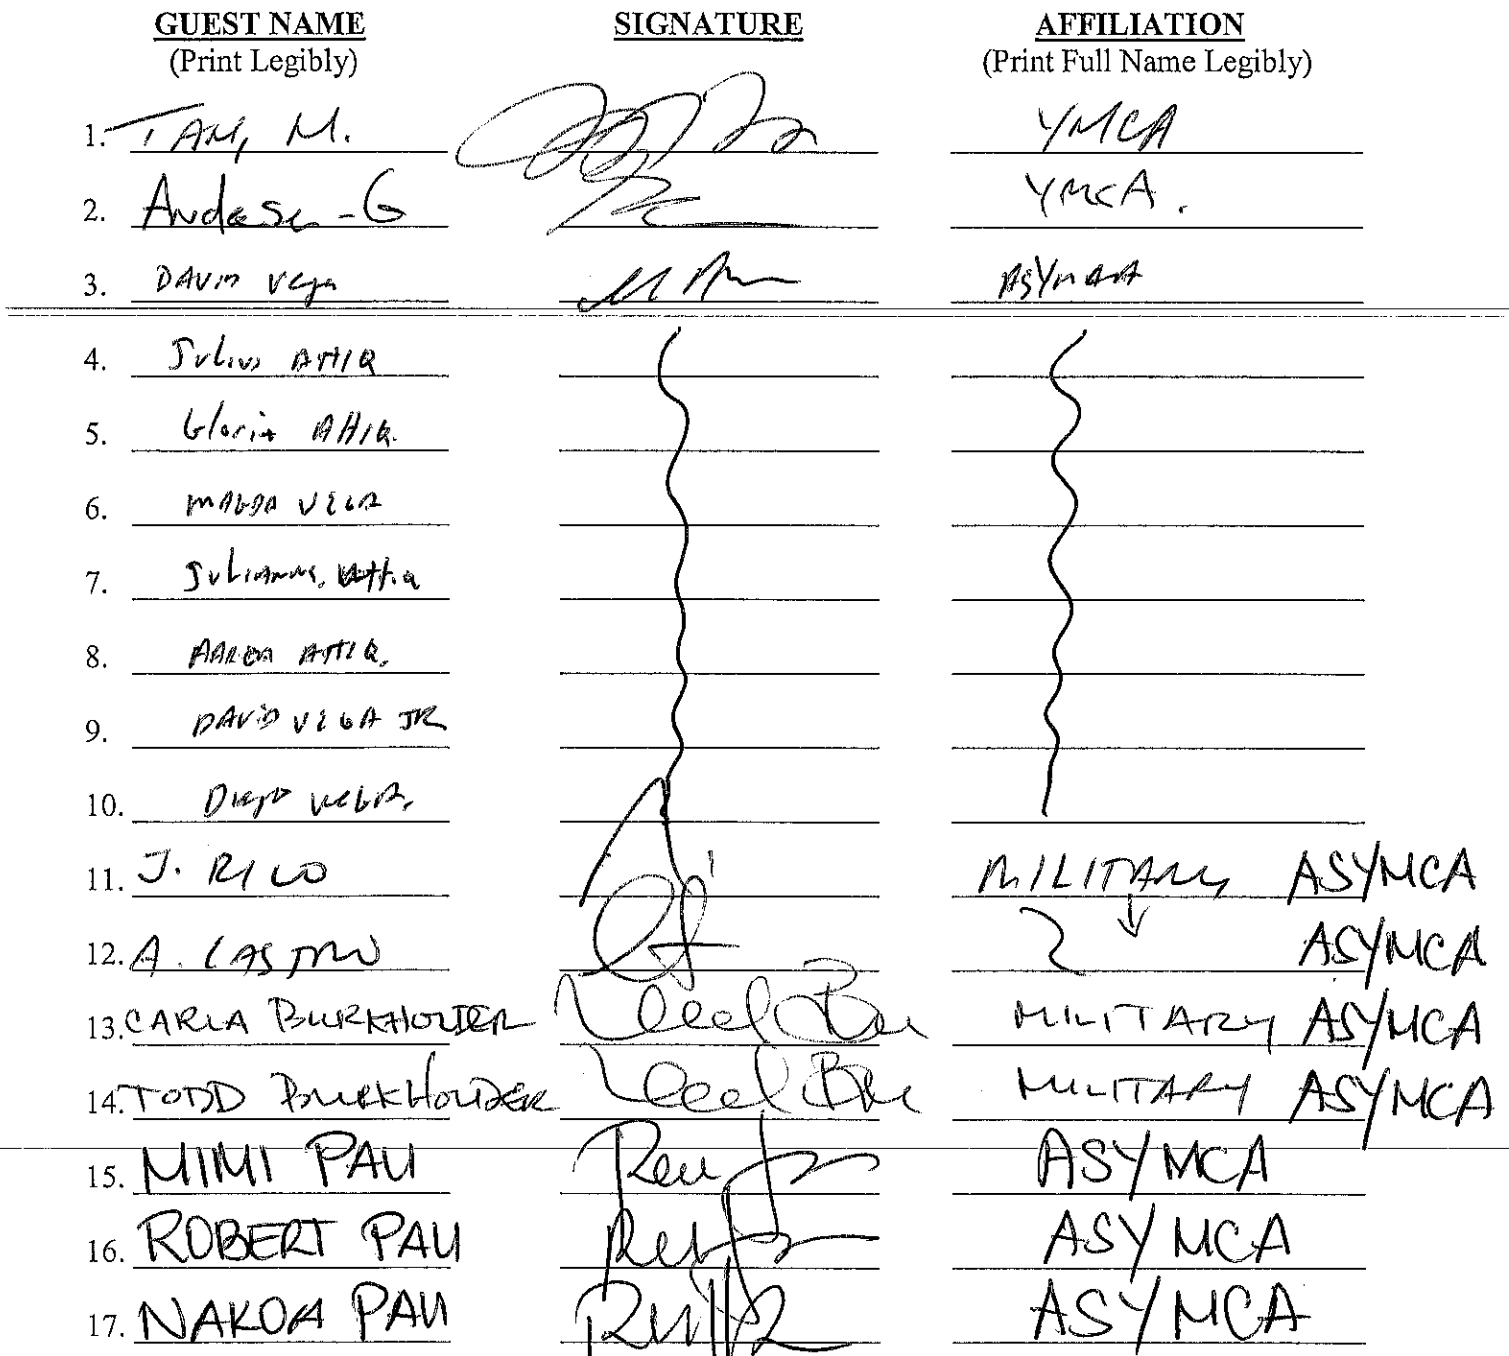 GUEST NAME SIGNATURE AFFILIATION
(Print Legibly) (Print Full Name Legibly)
1. TAM, M. YMCA
2. YMCA.
3. DAVID Vega ASYMCA
4. Julius ATTIQ
5. Gloria ATTIQ.
6. MAGDA VEGA
7. Julianna, Attiq
8. AAREN ATTIQ.
9. DAVID VEGA JR
10. Diego VEGA.
11. J. RICO MILITARY ASYMCA
12. A. CASTRO ASYMCA
13. CARLA BURKHOLDER MILITARY ASYMCA
14. TODD BURKHOLDER MILITARY ASYMCA
15. MIMI PAU ASYMCA
16. ROBERT PAU ASYMCA
17. NAKOA PAU ASYMCA